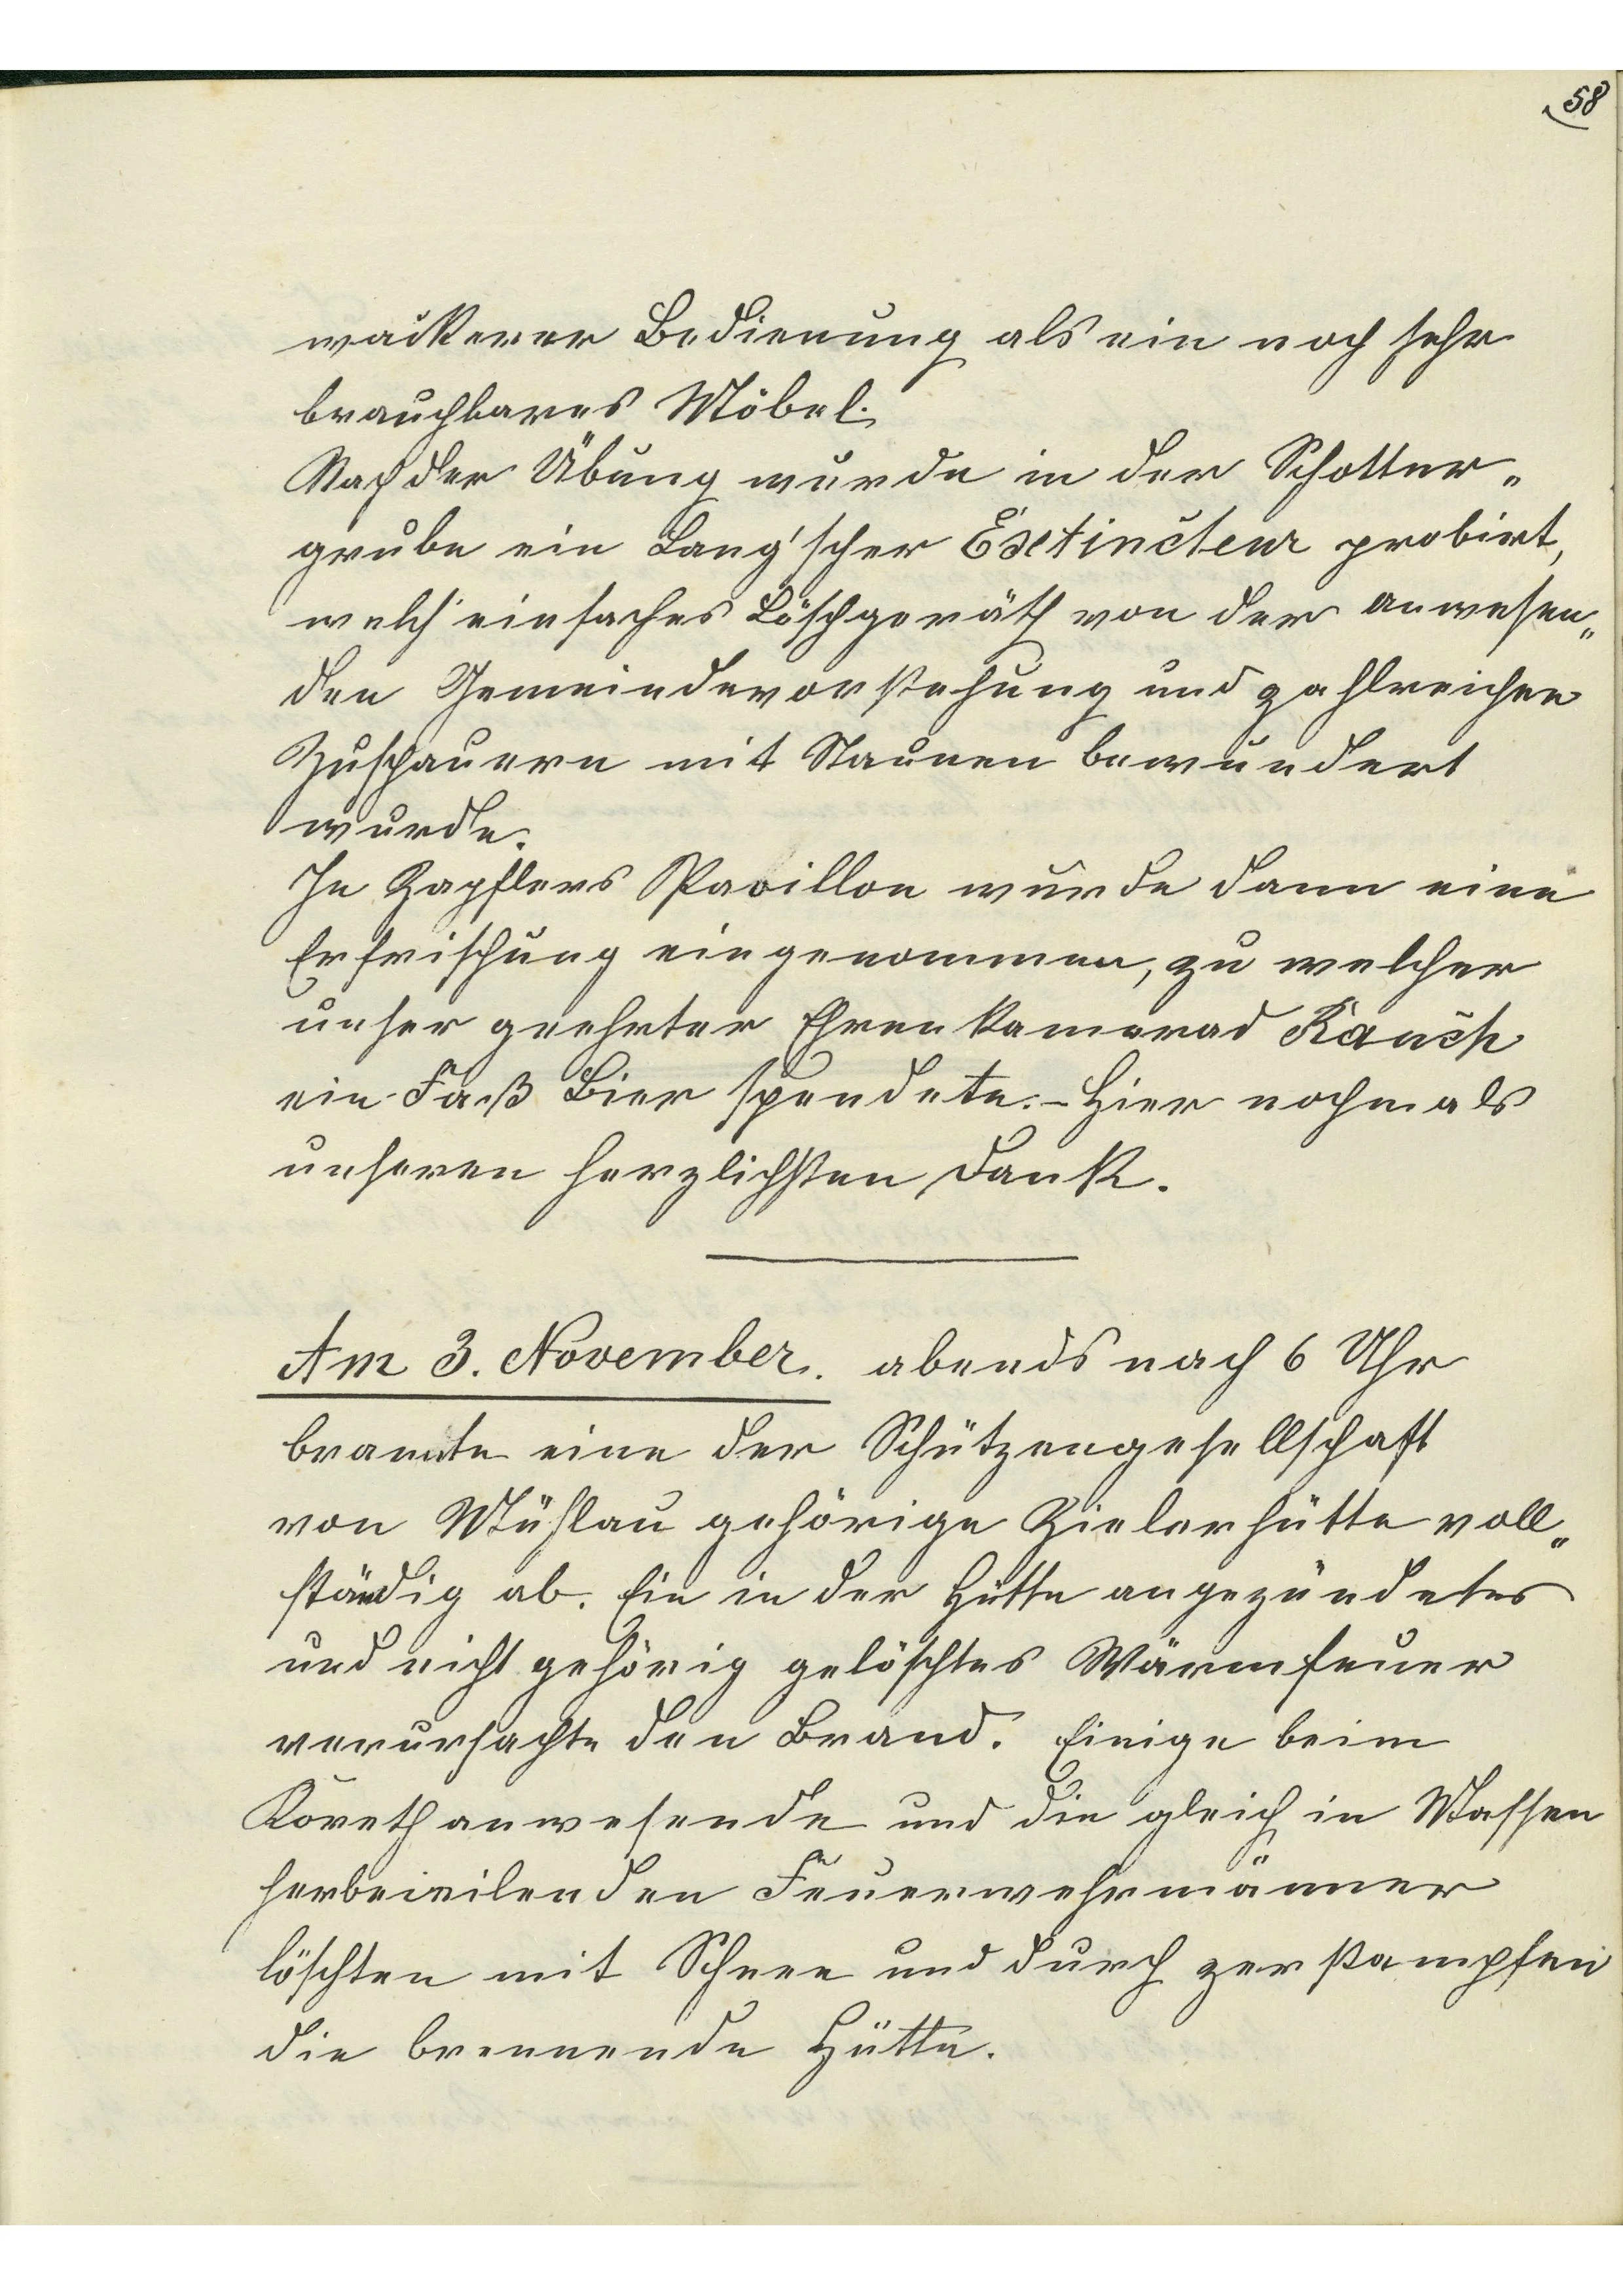 58
wackerer Bedienung als ein noch sehr
brauchbares Möbel.
Nach der Übung wurde in der Schotter„
grube ein Lang'scher Extincteur probirt,
welch' einfaches Löschgeräth von der anwesen„
den Gemeindevorstehung und zahlreichen
Zuschauern mit Staunen bewundert
wurde.
In Zapflers Pavillon wurde dann eine
Erfrischung eingenommen, zu welcher
unser geehrter Ehrenkamerad Rauch
ein Faß Bier spendete. – Hier nochmals
unseren herzlichsten Dank.
Am 3. November. abends nach 6 Uhr
brannte eine der Schützengesellschaft
von Mühlau gehörige Zielerhütte voll„
ständig ab. Ein in der Hütte angezündetes
und nicht gehörig gelöschtes Wärmfeuer
verursachte den Brand. Einige beim
Koreth anwesende und die gleich in Massen
herbeieilenden Feuerwehrmänner
löschten mit Schnee und durch zerstampfen
die brennende Hütte.